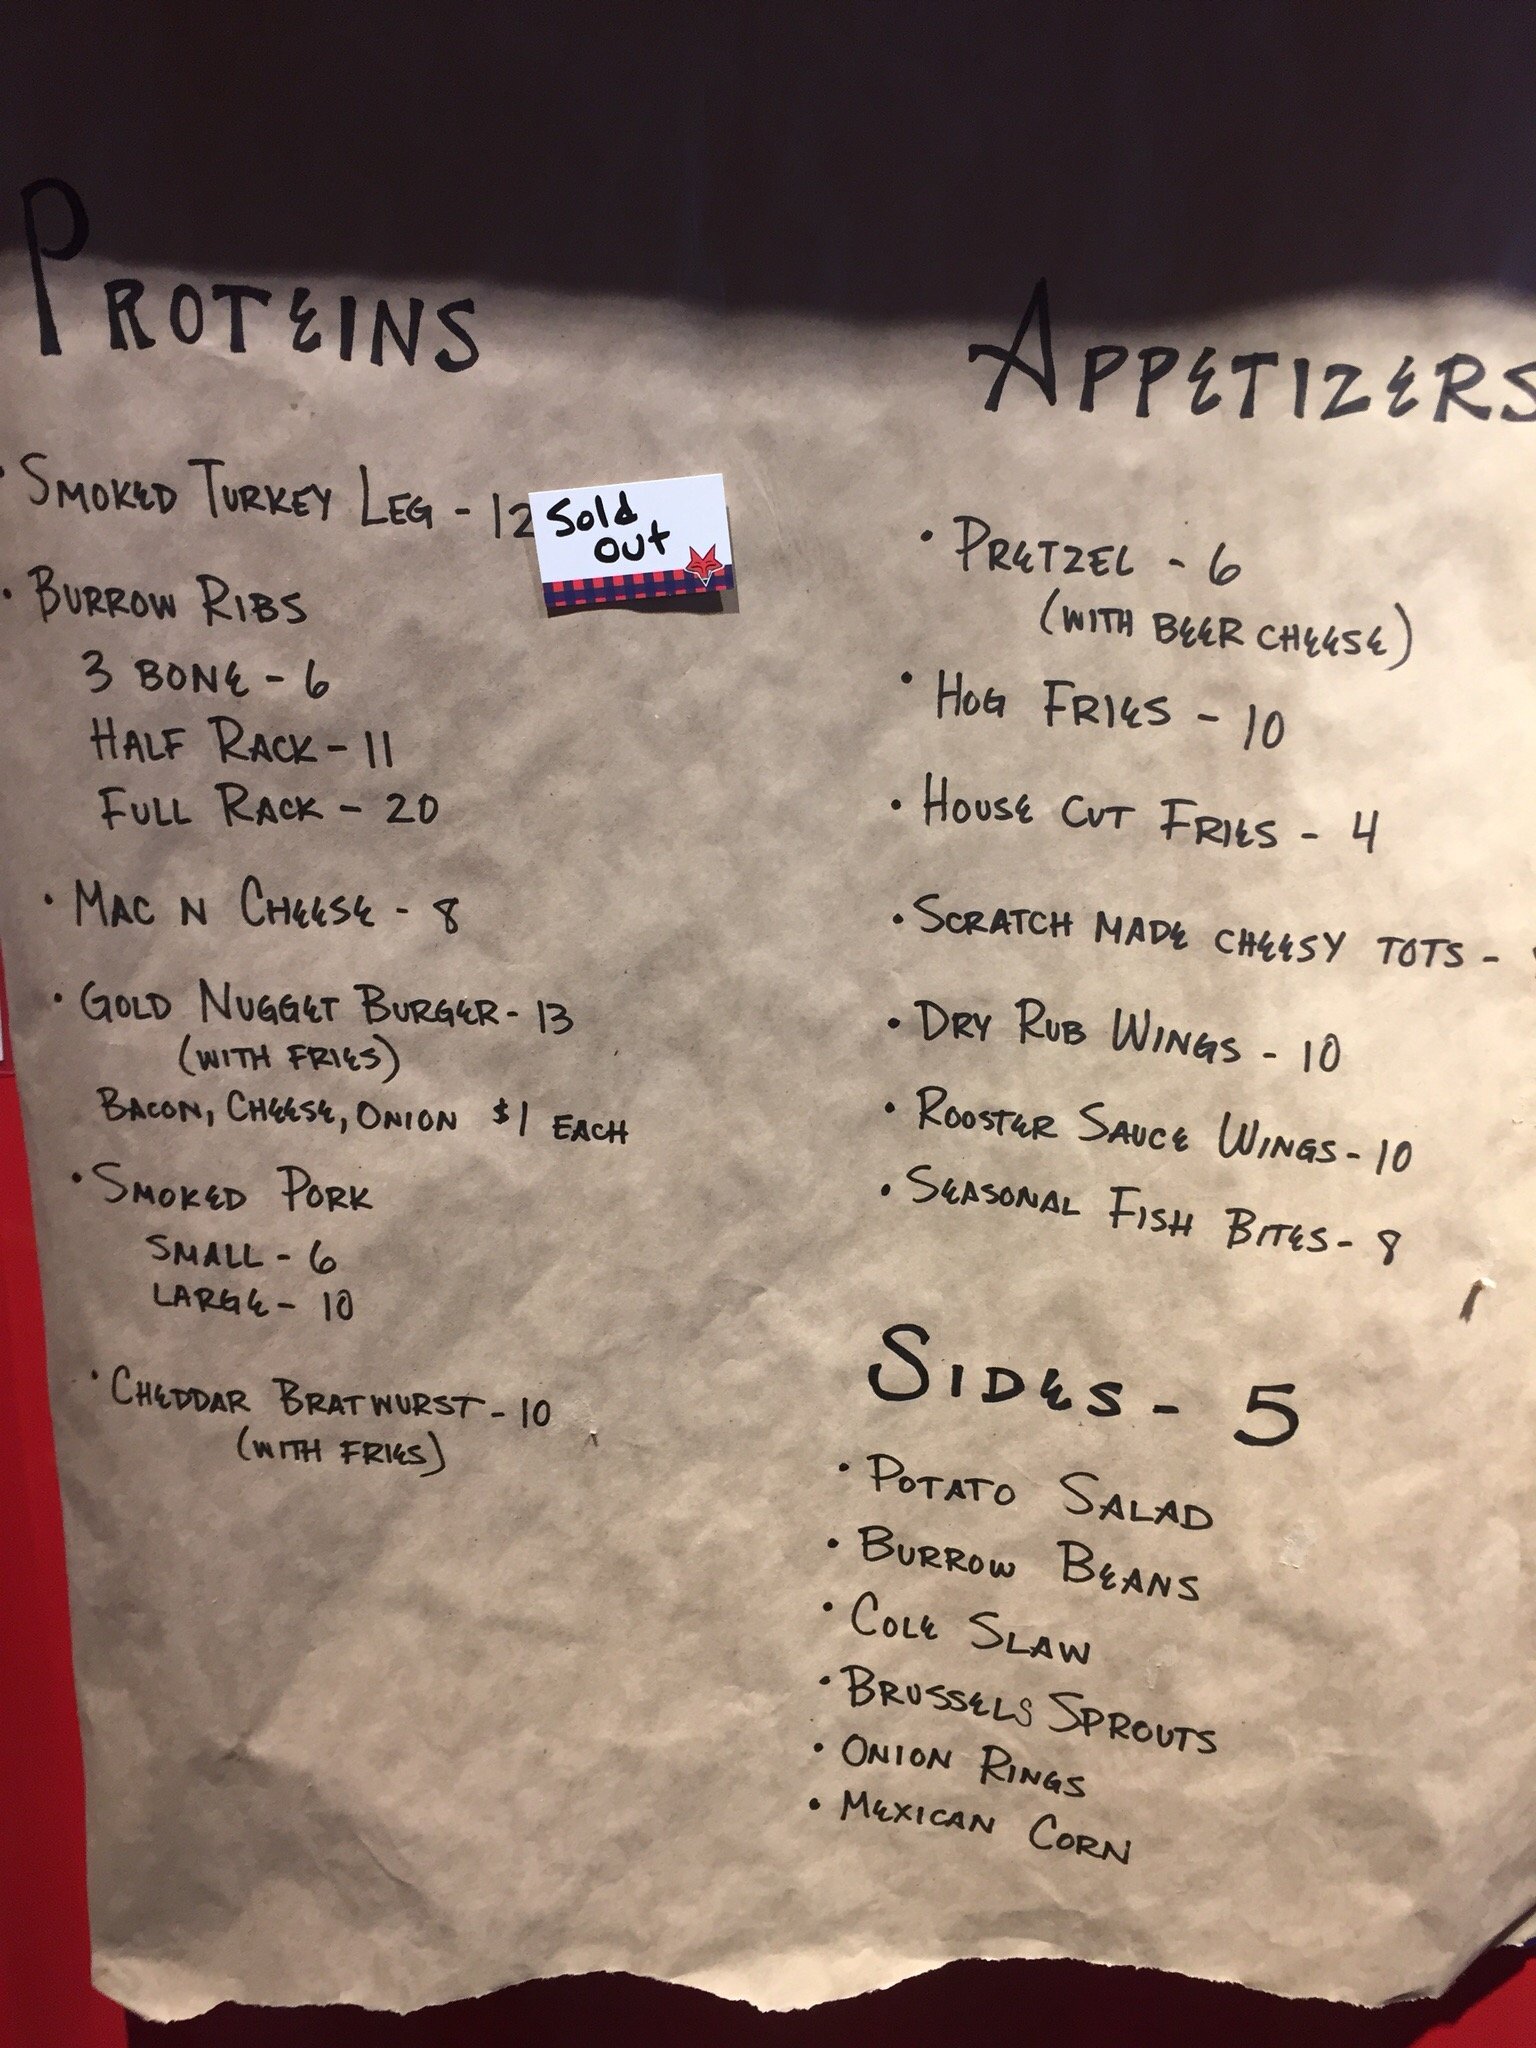 PROTEINS
• SMOKED TURKEY LEG - 12
Sold
out
• BURROW RIBS
3 BONE - 6
HALF RACK - 11
FULL RACK - 20
• MAC N CHEESE - 8
• GOLD NUGGET BURGER - 13
(WITH FRIES)
BACON, CHEESE, ONION $1 EACH
• SMOKED PORK
SMALL - 6
LARGE - 10
• CHEDDAR BRATWURST - 10
(WITH FRIES)
APPETIZERS
• PRETZEL - 6
(WITH BEER CHEESE)
• HOG FRIES - 10
• HOUSE CUT FRIES - 4
• SCRATCH MADE CHEESY TOTS -
• DRY RUB WINGS - 10
• ROOSTER SAUCE WINGS - 10
• SEASONAL FISH BITES - 8
SIDES - 5
• POTATO SALAD
• BURROW BEANS
• COLE SLAW
• BRUSSELS SPROUTS
• ONION RINGS
• MEXICAN CORN